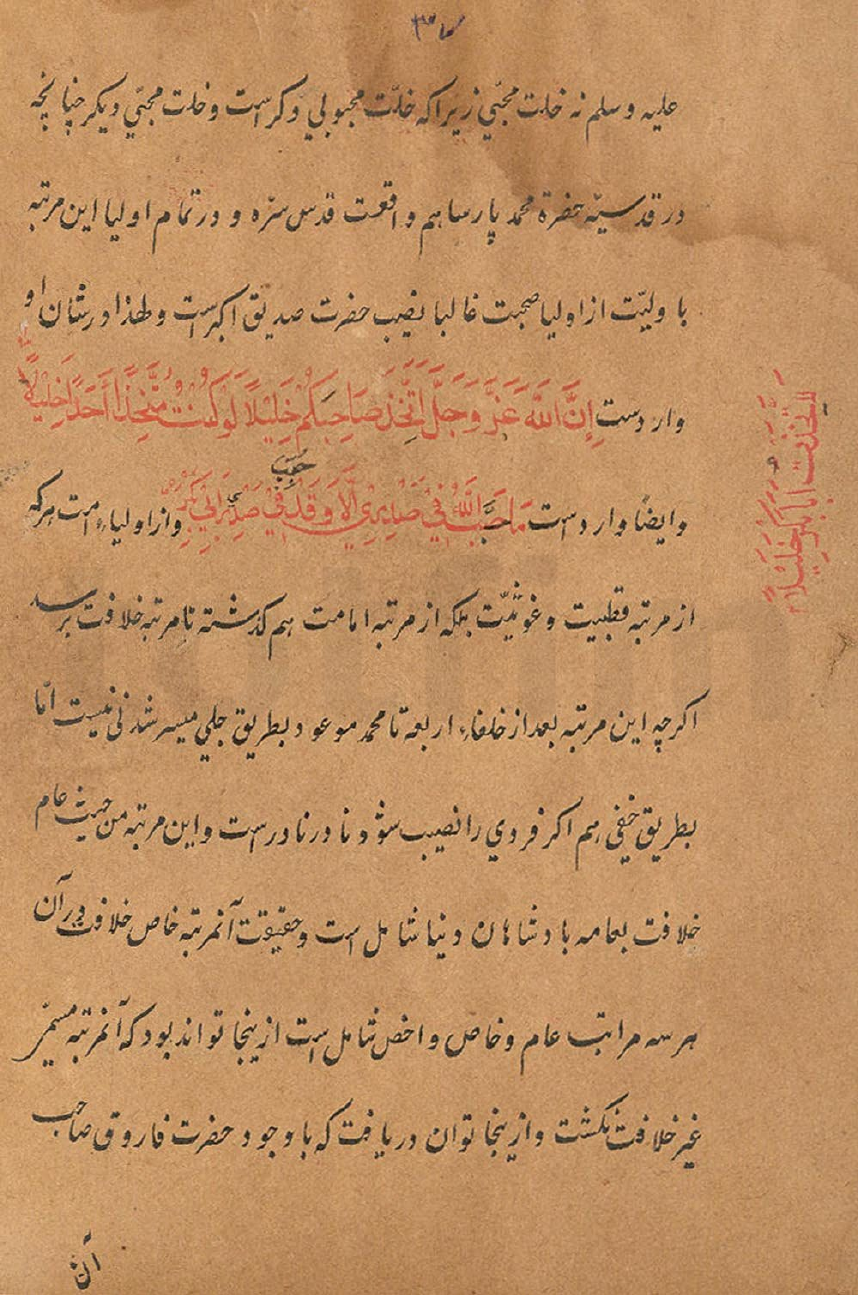 ۳۷
علیه وسلم نه خلت محبّي زیرا که خلّت محبوبي دکر است و خلت محبّي دیکر چنانچه
در قدسیّه حضرة محمد پارسا هم واقعت قدس سرّه و در تمام اولیا این مرتبه
با ولیّت از اولیا صحبت غالبا نصیب حضرت صدیق اکبر است ولهذا در شان او
وارد ست اِنَّ اللّٰهَ عَزَّ وَجَلَّ اتَّخَذَ صَاحِبَكُمْ خَلِيْلًا لَوْ كُنْتُ مُتَّخِذًا اَحَدًا خَلِيْلًا
لَاتَّخَذْتُ اَبَا بَكْرٍ خَلِيْلًا
وایضا وارد است مَا صَبَّ اللّٰهُ فِيْ صَدْرِيْ اِلَّا وَقَدْ صَبَبْتُ فِيْ صَدْرِ اَبِيْ بَكْرٍ و از اولیاء امت هر که
از مرتبه قطبیت و غوثیّت بلکه از مرتبه امامت هم کذشته تا مرتبه خلافت برسد
اکرچه این مرتبه بعد از خلفاء اربعه تا محمد موعود بطریق جلي میسر شدنی نیست امّا
بطریق خفي هم اکر فردي را نصیب شود نادر نادر است و این مرتبه من حیث عام
خلافت بعامه بادشاهان دنیا شامل است و حقیقت آنمرتبه خاص خلافت در آن
هر سه مراتب عام و خاص و اخص شامل است از ینجا تواند بود که آنمرتبه مسمّی
غیر خلافت نکشت و از ینجا توان دریافت که با وجود حضرت فاروق صاحب
آن